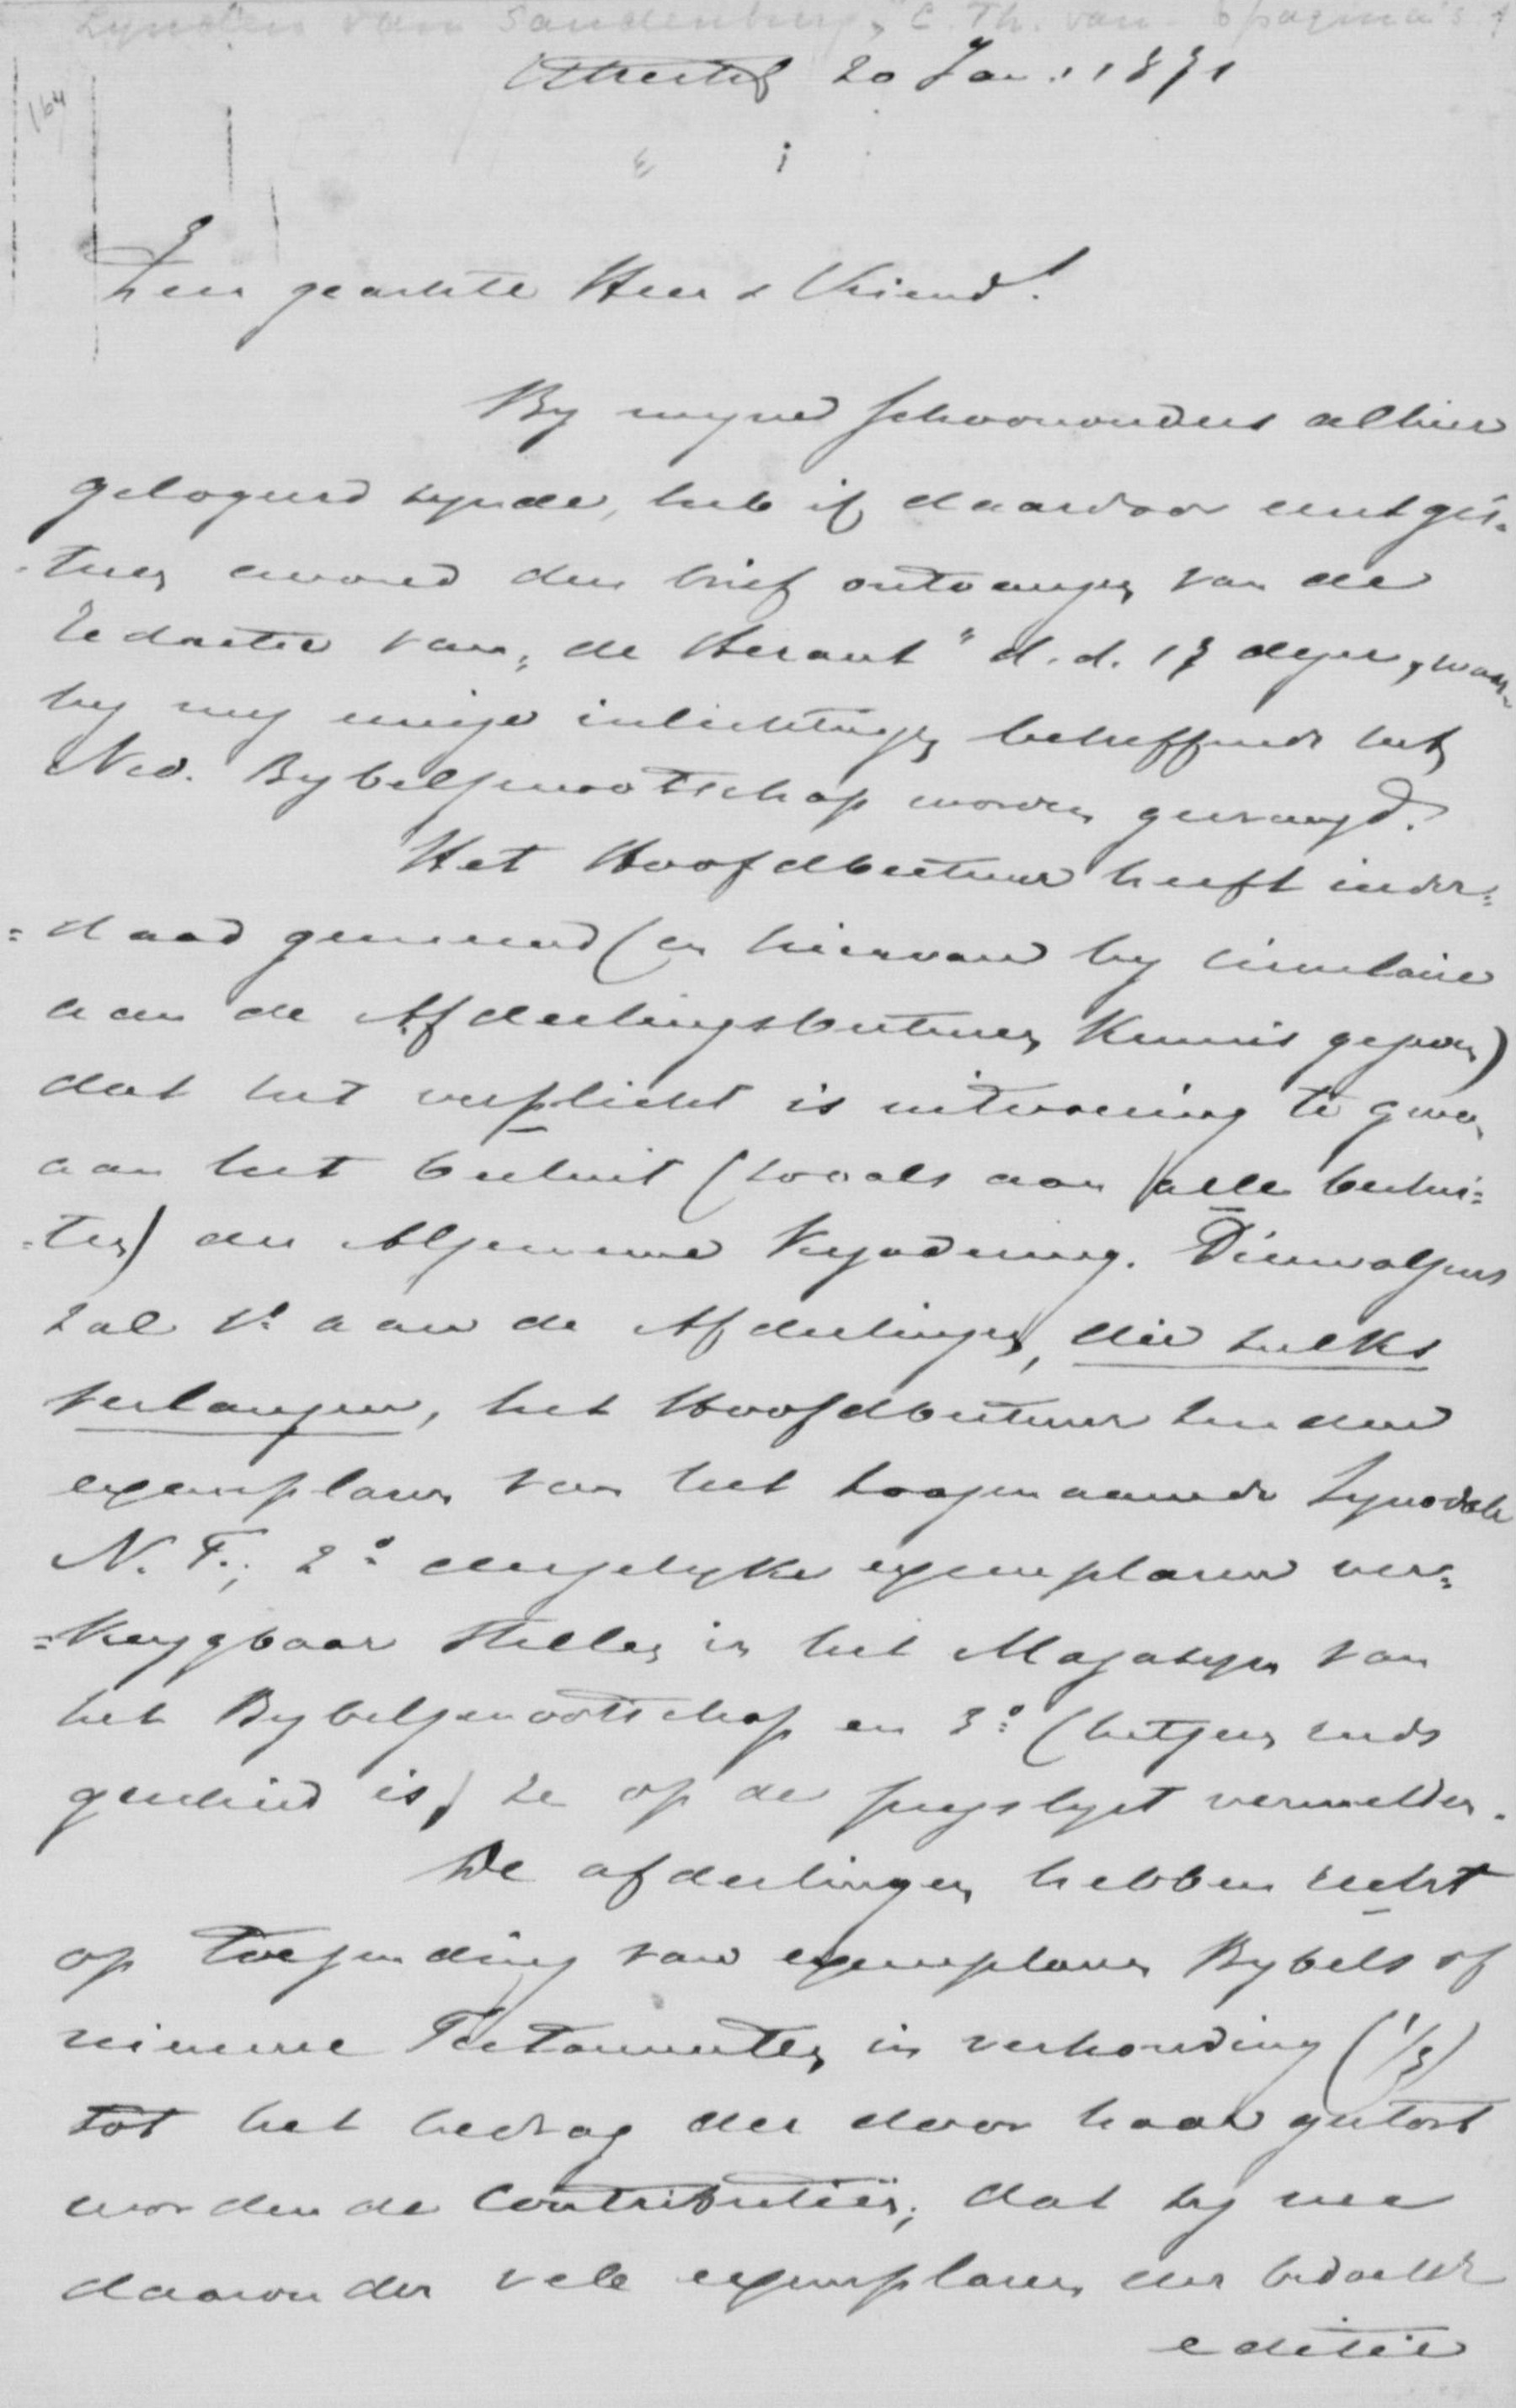 Lynden van Sandenburg, C. Th. van 6 pagina's
164
Utrecht 20 Jan. 1871
Zeer geachte Heer & Vriend!
By myne schoonouders alhier
gelogeerd zynde, heb ik daardoor eerst gis-
-teren avond den brief ontvangen van de
Redactie van „de Heraut" d.d. 17 dezer, waar-
by my eenige inlichtingen betreffende het
Ned. Bybelgenootschap worden gevraagd.
Het Hoofdbestuur heeft inder=
=daad gemeend (en hiervan by circulaire
aan de Afdeelingsbesturen kennis gegeven)
dat het verplicht is uitvoering te geven
aan het besluit (zooals aan alle beslui=
=ten) der Algemeene Vergadering. Dienvolgens
zal 1o aan de Afdeelingen, die zulks
verlangen, het Hoofdbestuur zenden
exemplaren van het zoogenaamde Synodale
N. T.; 2o dergelyke exemplaren ver=
=krygbaar stellen in het Magazyn van
het Bybelgenootschap en 3o (hetgeen reeds
geschied is) ze op de pryslyst vermelden.
De afdeelingen hebben recht
op toezending van exemplaren Bybels of
nieuwe Testamenten in verhouding (1/3)
tot het bedrag der door haar gestort
wordende Contributiën; dat zy nu
daaronder vele exemplaren der bedoelde
editie